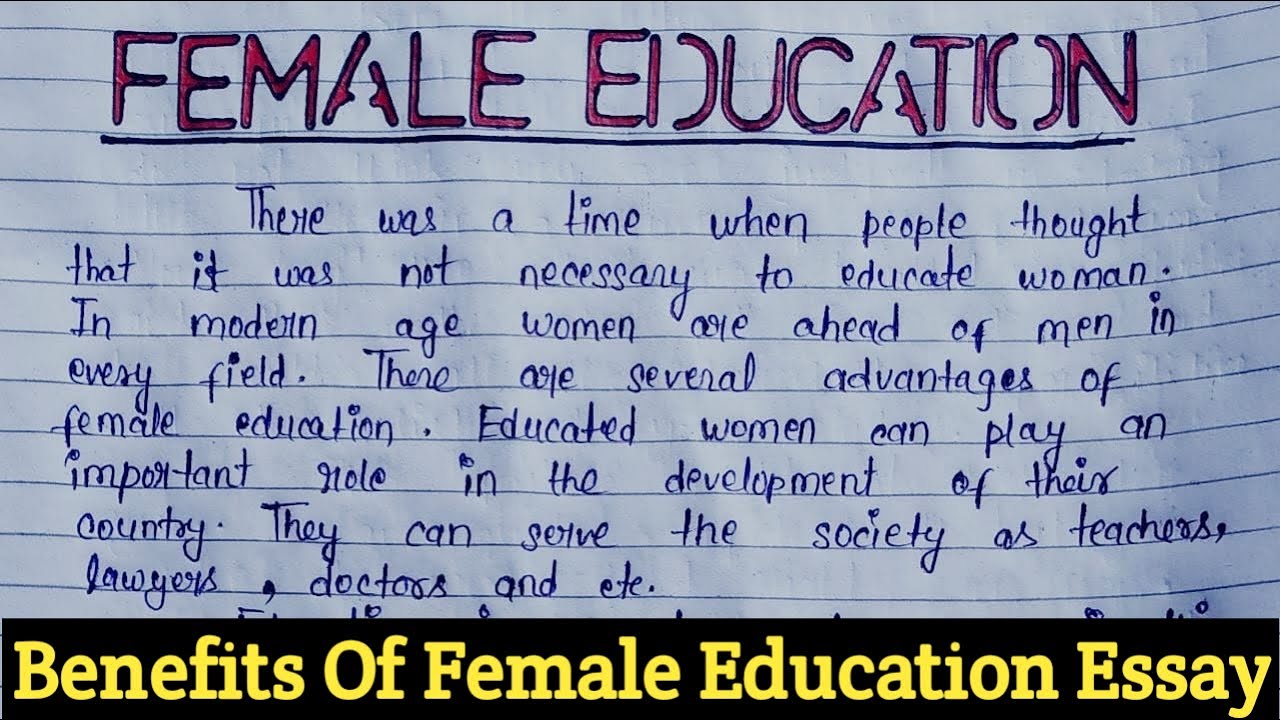 FEMALE EDUCATION
There was a time when people thought
that it was not necessary to educate woman.
In modern age women are ahead of men in
every field. There are several advantages of
female education. Educated women can play an
important role in the development of their
country. They can serve the society as teachers,
lawyers, doctors and etc.
Benefits Of Female Education Essay